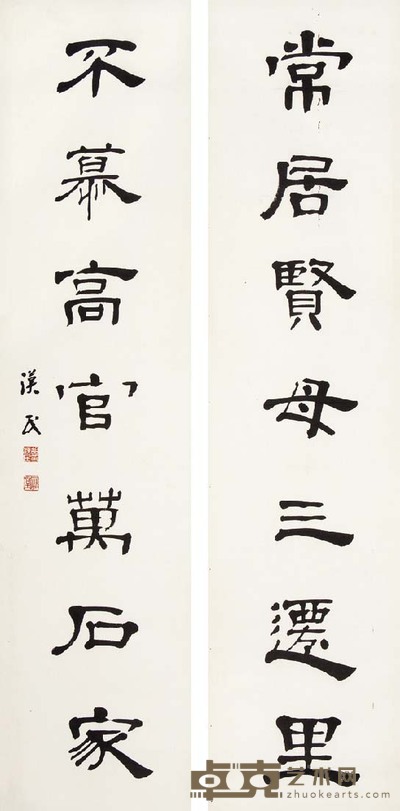 常居賢母三遷里
不慕高官萬石家
漢民
卓克艺术网
zhuokearts.com